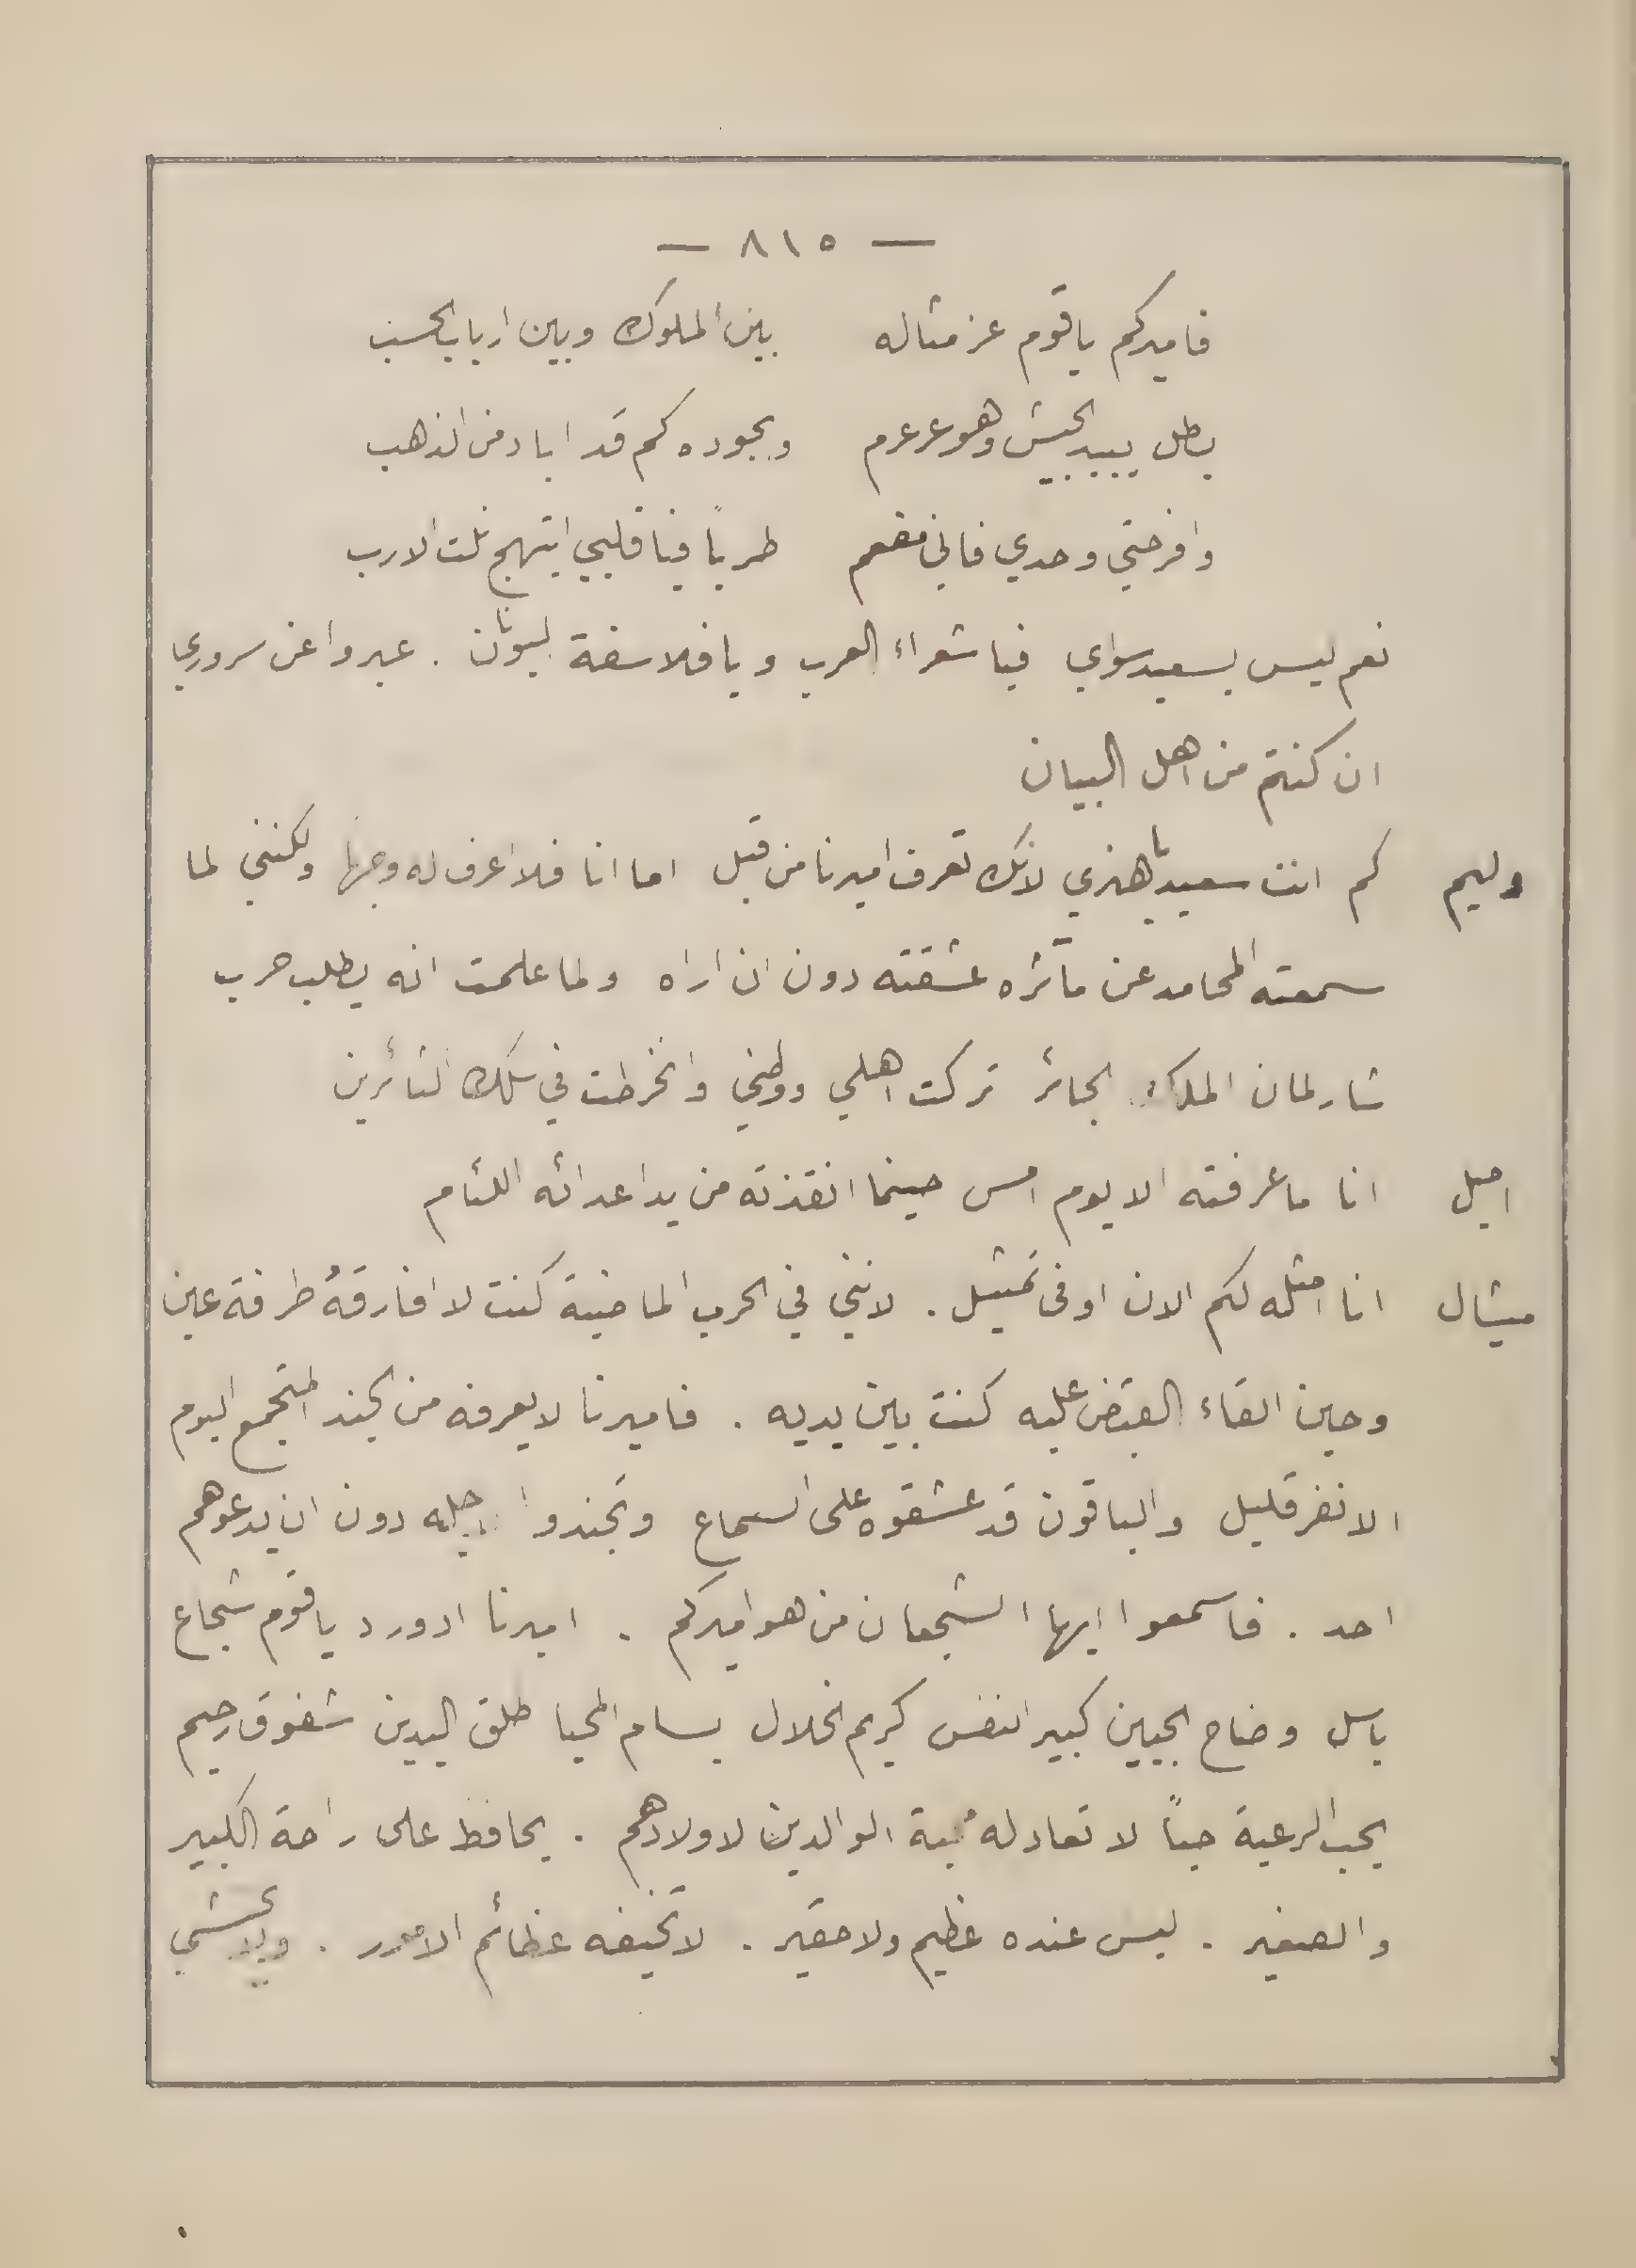 — ٨١٥ —
فاميركم ياقوم عز مثاله بين الملوك وبين ارباب الحسب
بطل يبيد الجيش وهو عرعرم وبجوده كم قد اباد من الذهب
وافرحتي وحدي فاني مفعم طرباً فيا قلبي ابتهج نلت الارب
نعم ليس بسعيد سواي فيا شعراء العرب ويا فلاسفة اليونان . عبروا عن سروري
ان كنتم من اهل البيان
وليم كم انت سعيد يا هنري لانك تعرف اميرنا من قبل اما انا فلا اعرف له وجها ولكنني لما
سمعته المحامد عن مآثره عشقته دون ان اراه ولما علمت انه يطلب حرب
شارلمان الملك الجائر تركت اهلي ووطني وانخرطت في سلك الثائرين
اميل انا ما عرفته الا يوم امس حينما انقذته من يد اعدائه اللئام
ميشال انا امثله لكم الان اوفى تمثيل . لانني في الحرب الماضية كنت لا افارقهُ طرفة عين
وحين القاء القبض عليه كنت بين يديه . فاميرنا لا يعرفه من الجند المتجمع اليوم
الا نفر قليل والباقون قد عشقوه على السماع وتجندوا لاجله دون ان يدعوهم
احد . فاسمعوا ايها الشجعان من هو اميركم . اميرنا ادورد ياقوم شجاع
باسل وضاح الجبين كبير النفس كريم الخلال بسام المحيا طلق اليدين شفوق رحيم
يحب الرعية حباً لا تعادله محبة الوالدين لاولادهم . يحافظ على راحة الكبير
والصغير . ليس عنده عظيم ولا حقير . لا تخيفه عظائم الامور .